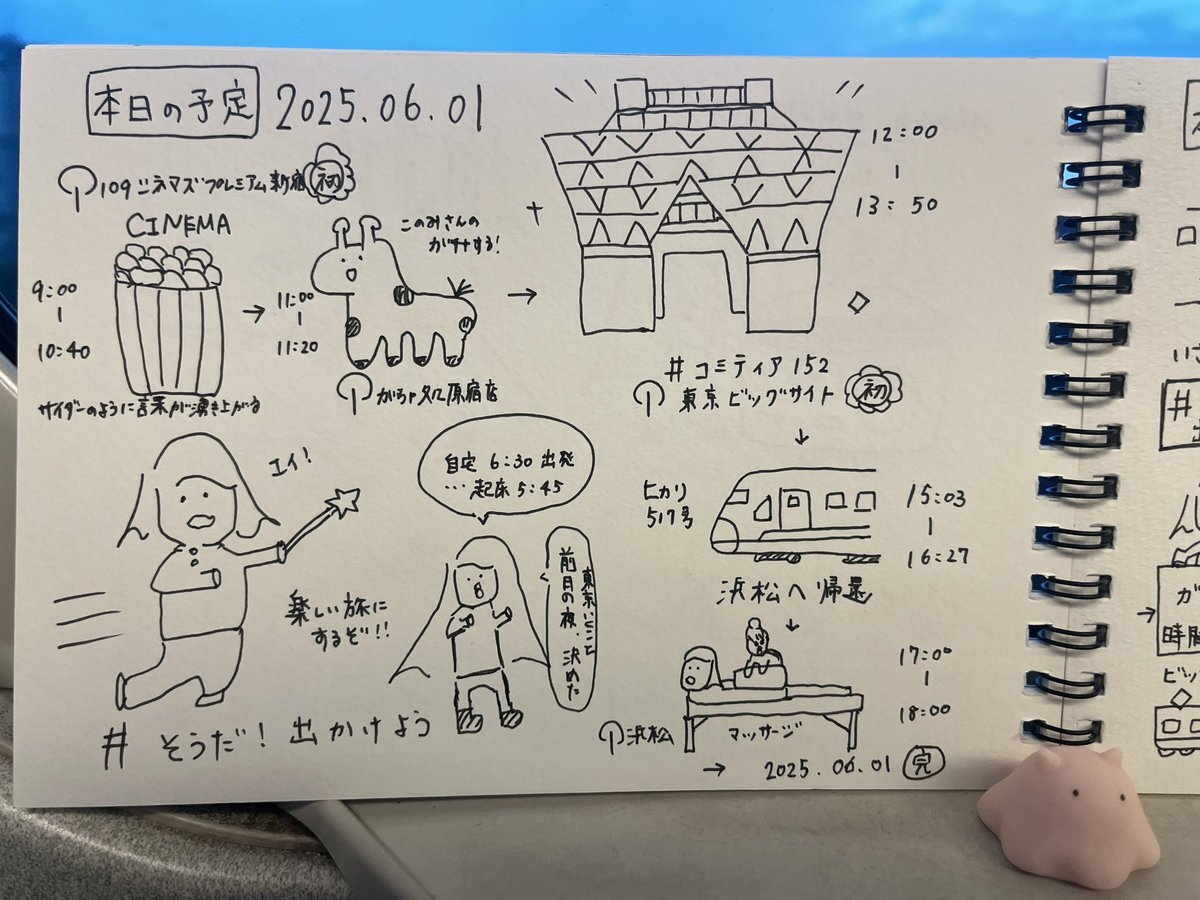 本日の予定 2025.06.01
109シネマズプレミアム新宿 初
CINEMA
9:00
|
10:40
サイダーのように言葉が湧き上がる
→
このみさんの
ガチャする!
11:00
|
11:20
原宿店
→
12:00
|
13:50
#コミティア152
東京ビッグサイト 初
↓
ヒカリ
517号
15:03
|
16:27
浜松へ帰還
↓
17:00
|
18:00
浜松
マッサージ
→ 2025.06.01 完
エイ!
楽しい旅に
するぞ!!
自宅 6:30 出発
…起床 5:45
東京いこと
前日の夜、決めた
# そうだ!出かけよう
#
→
ガ
時間
ビッ